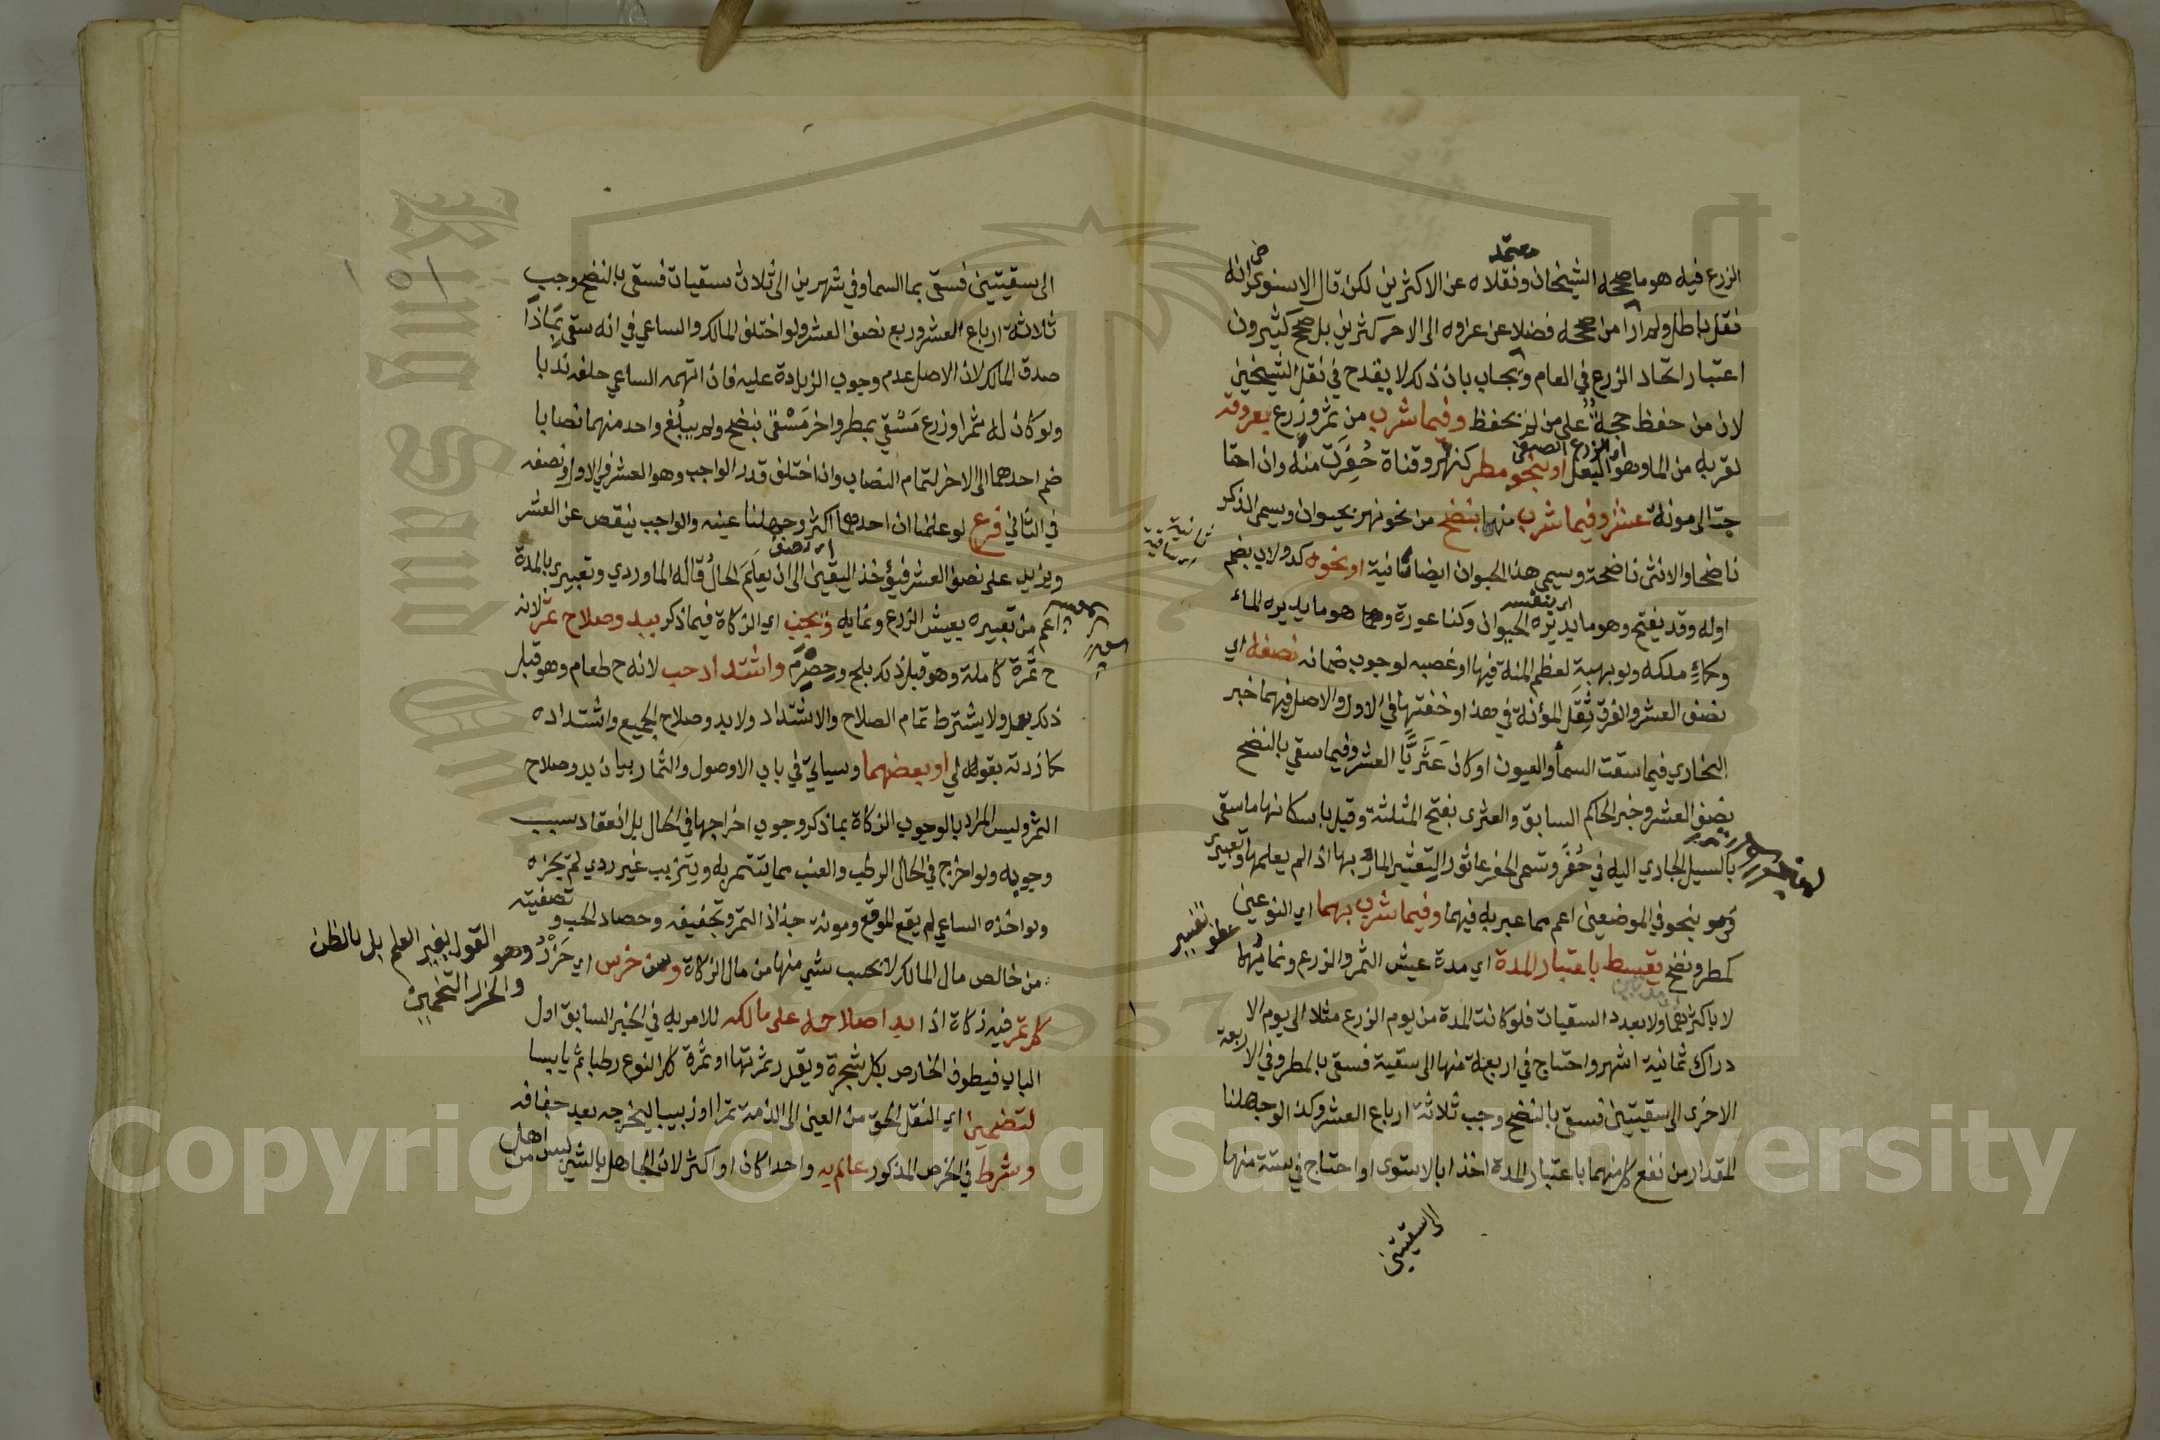 الزرع فيه هو ما صححه الشيخان ونقلاه عن الاكثرين لكن قال الاسنوي انه
نقل باطل ولم ار من صححه فضلا عن عزوه الى الاكثرين بل صحح كثيرون
اعتبار اتحاد الزرع في العام ويجاب بان ذلك لا يقدح في نقل الشيخين
لان من حفظ حجة على من لم يحفظ وفيما شرب من ثمر وزرع بعروقه
لقربه من الما وهو البعل او بنحو مطر كنهر وقناة حفرت منه وان احتا
جت الى مونة عشر وفيما شرب منهما بنضح من نحو نهر بحيوان ويسمى الذكر
ناضحا والانثى ناضحة ويسمى هذا الحيوان ايضا سانية او بنحوه كدولاب بضم
اوله وقد يفتح وهو ما يديره الحيوان وكناعورة وهو ما يديره الماء
وكماء ملكه ولو بهبة لعظم المنة فيها او غصبه لوجوب ضمانه نصفه اي
نصف العشر والفرق ثقل المؤنة في هذا وخفتها في الاول والاصل فيهما خبر
البخاري فيما سقت السما والعيون او كان عثريا العشر وفيما سقي بالنضح
نصف العشر وخبر الحاكم السابق والعثري بفتح المثلثة وقيل باسكانها ما سقي
بالسيل الجاري اليه في حفر وتسمى الحفر عاثورا لتعثر المار بها اذا لم يعلمها وتعبيري
بنحو في الموضعين اعم مما عبر به فيهما وفيما شرب بهما اي النوعين
كمطر ونضح يقسط باعتبار المدة اي مدة عيش الثمر والزرع ونمائهما
لا باكثرهما ولا بعدد السقيات فلو كانت المدة من يوم الزرع مثلا الى يوم الا
دراك ثمانية اشهر واحتاج في اربعة منها الى سقية فسقي بالمطر وفي الاربعة
الاخرى الى سقيتين فسقي بالنضح وجب ثلاثة ارباع العشر وكذا لو جهلنا
المقدار من نفع كل منهما باعتبار المدة اخذا بالاستوى او احتاج في ستة منها
الى سقيتين
معتمد
سانية
عطف تفسير
الى سقيتين فسقي بما السما وفي شهرين الى ثلاث سقيات فسقي بالنضح وجب
ثلاثة ارباع العشر وربع نصف العشر ولو اختلف المالك والساعي في انه سقي بماذا
صدق المالك لان الاصل عدم وجوب الزيادة عليه فان اتهمه الساعي حلفه ندبا
ولو كان له ثمر او زرع مسقي بمطر واخر مسقي بنضح ولم يبلغ واحد منهما نصابا
ضم احدهما الى الاخر لتمام النصاب وان اختلف قدر الواجب وهو العشر في الاول ونصفه
في الثاني فرع لو علمنا ان احدهما اكثر وجهلنا عينه والواجب ينقص عن العشر
ويزيد على نصف العشر فيؤخذ اليقين الى ان يعلم الحال قاله الماوردي وتعبيري بالمدة
اعم من تعبيره بعيش الزرع ونمايه وتجب اي الزكاة فيما ذكر ببدو صلاح ثمر لانه
ح ثمرة كاملة وهو قبل ذلك بلح وحصرم واشتداد حب لانه ح طعام وهو قبل
ذلك بقل ولا يشترط تمام الصلاح والاشتداد ولا بدو صلاح الجميع واشتداده
كما زدته بقولي او بعضهما وسياتي في باب الاوصول والثمار بيان بدو صلاح
الثمر وليس المراد بالوجوب الزكاة بما ذكر وجوب اخراجها في الحال بل انعقاد سبب
وجوبه ولو اخرج في الحال الرطب والعنب مما يتتمر به ويتزبب غير ردي لم يجزه
ولو اخذه الساعي لم يقع الموقع ومونة جذاذ الثمر وتجفيفه وحصاد الحب وتصفيته
من خالص مال المالك لا يحسب شي منها من مال الزكاة وسن خرص اي حزر
كل ثمر فيه زكاة اذا بدا صلاحه على مالكه للامر به في الخبر السابق اول
الباب فيطوف الخارص بكل شجرة ويقدر ثمرتها او ثمرة كل النوع رطبا ثم يابسا
لتضمين اي النقل الحق من العين الى الذمة تمرا او زبيبا ليخرجه بعد جفافه
وشرط في الخرص المذكور عالم به واحدا كان او اكثر لان الجاهل بالشي ليس من اهله
وهو القول بغير العلم بل بالظن
والحزر التخمين
Copyright © King Saud University
King Saud University
1957